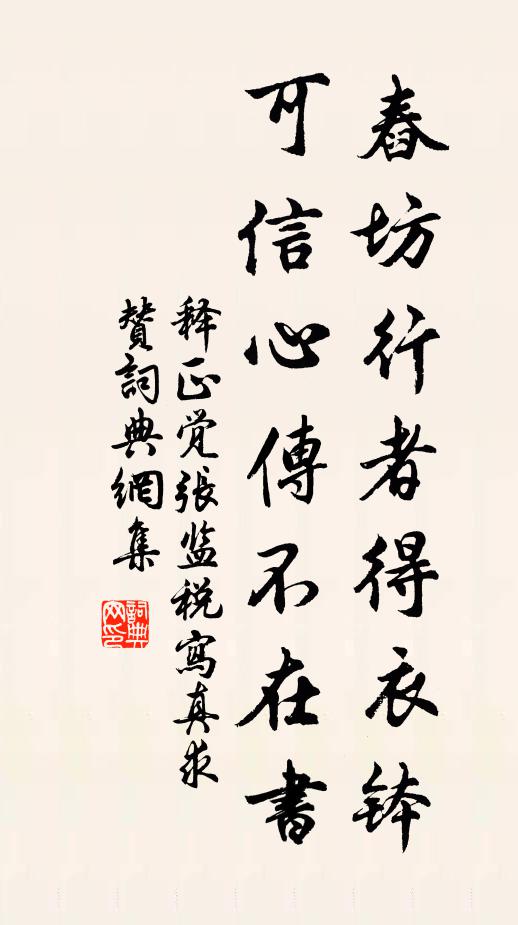 舂坊行者得衣鉢
可信心傳不在書
釋正覚張监税寫真求
贊詞典網集
詞典网印